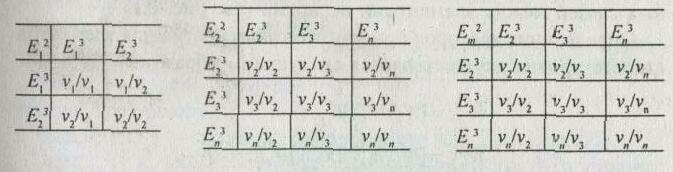 E₁² E₁³ E₂³
E₁³ v₁/v₁ v₁/v₂
E₂³ v₂/v₁ v₂/v₂
E₂² E₂³ E₃³ Eₙ³
E₂³ v₂/v₂ v₂/v₃ v₂/vₙ
E₃³ v₃/v₂ v₃/v₃ v₃/vₙ
Eₙ³ vₙ/v₂ vₙ/v₃ vₙ/vₙ
Eₘ² E₂³ E₃³ Eₙ³
E₂³ v₂/v₂ v₂/v₃ v₂/vₙ
E₃³ v₃/v₂ v₃/v₃ v₃/vₙ
Eₙ³ vₙ/v₂ vₙ/v₃ vₙ/vₙ